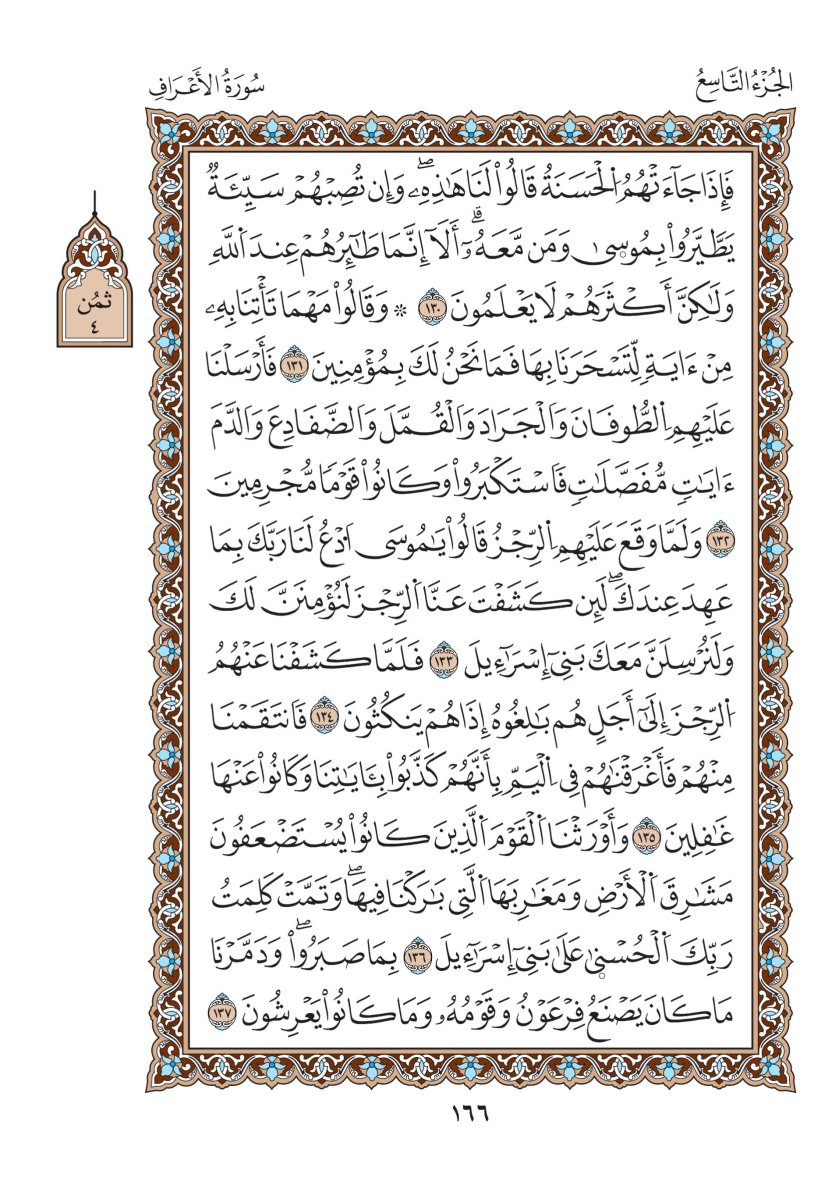 الجُزْءُ التَّاسِعُ
سُورَةُ الأَعْرَافِ
فَإِذَا جَآءَتْهُمُ اُ۬لْحَسَنَةُ قَالُواْ لَنَا هَٰذِهِۦۖ وَإِن تُصِبْهُمْ سَيِّئَةٞ
يَطَّيَّرُواْ بِمُوس۪ىٰ وَمَن مَّعَهُۥٓۗ أَلَآ إِنَّمَا طَٰٓئِرُهُمْ عِندَ اَ۬للَّهِ
وَلَٰكِنَّ أَكْثَرَهُمْ لَا يَعْلَمُونَ ١٣٠ ۞ وَقَالُواْ مَهْمَا تَأْتِنَا بِهِۦ
مِنْ ءَايَةٖ لِّتَسْحَرَنَا بِهَا فَمَا نَحْنُ لَكَ بِمُؤْمِنِينَ ١٣١ فَأَرْسَلْنَا
عَلَيْهِمِ اِ۬لطُّوفَانَ وَالْجَرَادَ وَالْقُمَّلَ وَالضَّفَادِعَ وَالدَّمَ
ءَايَٰتٖ مُّفَصَّلَٰتٖ فَاسْتَكْبَرُواْ وَكَانُواْ قَوْمٗا مُّجْرِمِينَ
١٣٢ وَلَمَّا وَقَعَ عَلَيْهِمِ اِ۬لرِّجْزُ قَالُواْ يَٰمُوسَى اَ۟دْعُ لَنَا رَبَّكَ بِمَا
عَهِدَ عِندَكَۖ لَئِن كَشَفْتَ عَنَّا اَ۬لرِّجْزَ لَنُؤْمِنَنَّ لَكَ
وَلَنُرْسِلَنَّ مَعَكَ بَنِىٓ إِسْرَٰٓءِيلَ ١٣٣ فَلَمَّا كَشَفْنَا عَنْهُمُ
اُ۬لرِّجْزَ إِلَىٰٓ أَجَلٍ هُم بَٰلِغُوهُ إِذَا هُمْ يَنكُثُونَ ١٣٤ فَانتَقَمْنَا
مِنْهُمْ فَأَغْرَقْنَٰهُمْ فِى اِ۬لْيَمِّ بِأَنَّهُمْ كَذَّبُواْ بِـَٔايَٰتِنَا وَكَانُواْ عَنْهَا
غَٰفِلِينَ ١٣٥ وَأَوْرَثْنَا اَ۬لْقَوْمَ اَ۬لَّذِينَ كَانُواْ يُسْتَضْعَفُونَ
مَشَٰرِقَ اَ۬لْأَرْضِ وَمَغَٰرِبَهَا اَ۬لَّتِى بَٰرَكْنَا فِيهَاۖ وَتَمَّتْ كَلِمَتُ
رَبِّكَ اَ۬لْحُسْن۪ىٰ عَلَىٰ بَنِىٓ إِسْرَٰٓءِيلَ ١٣٦ بِمَا صَبَرُواْۖ وَدَمَّرْنَا
مَا كَانَ يَصْنَعُ فِرْعَوْنُ وَقَوْمُهُۥ وَمَا كَانُواْ يَعْرِشُونَ ١٣٧
ثُمُن
٤
١٦٦